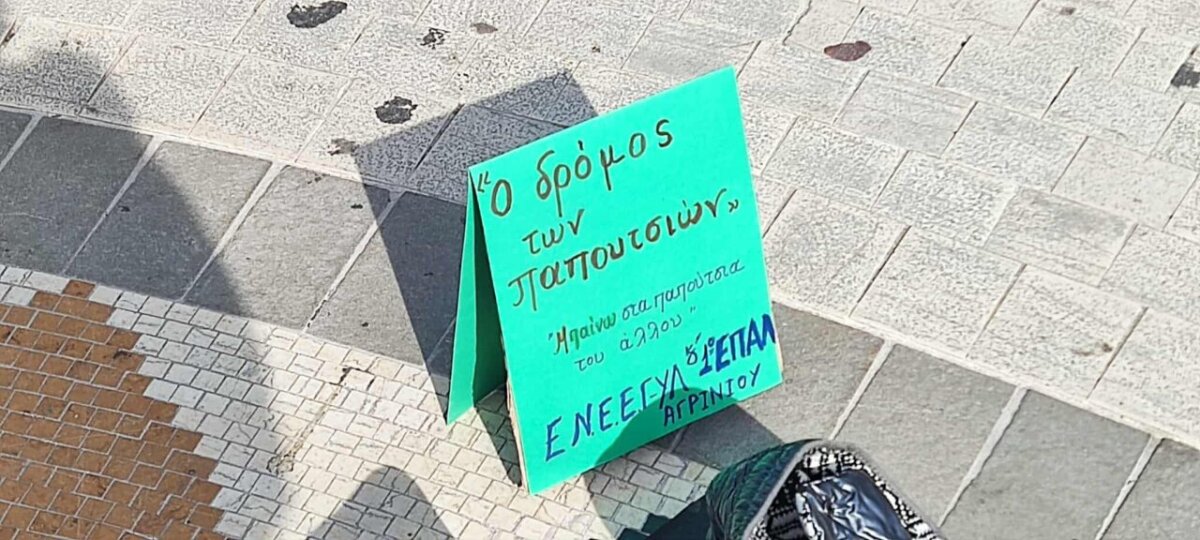 «Ο δρόμος
των
παπουτσιών»
"Μπαίνω στα παπούτσια
του άλλου"
Ε.Ν.Ε.Ε.ΓΥ.Λ & 1ο ΕΠΑΛ
ΑΓΡΙΝΙΟΥ